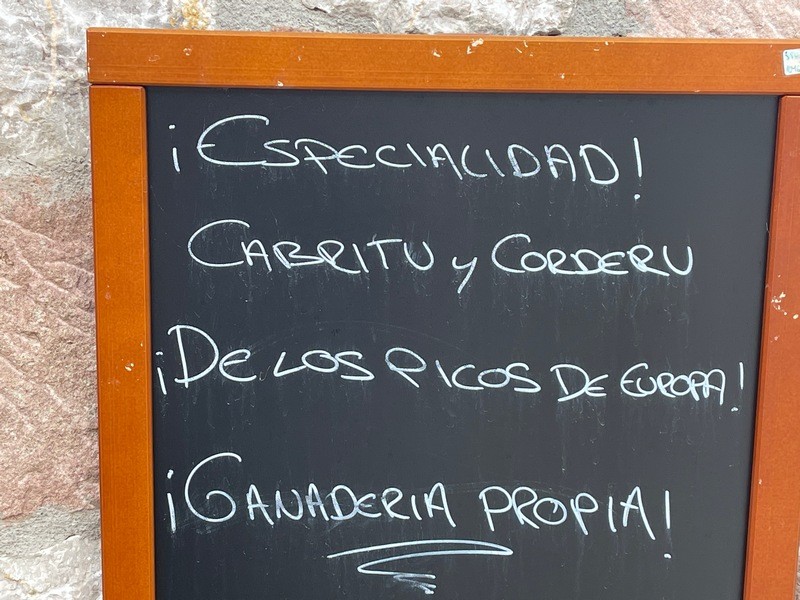 ¡ESPECIALIDAD!
CABRITU y CORDERU
¡DE LOS PICOS DE EUROPA!
¡GANADERIA PROPIA!